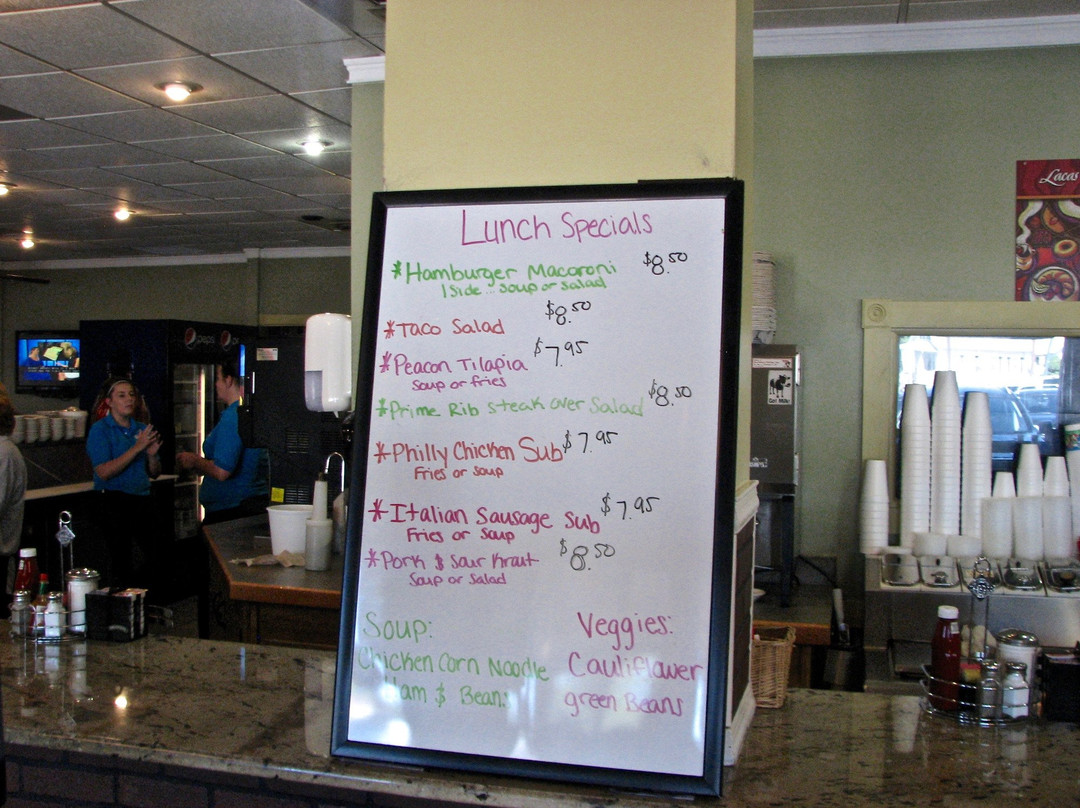 Lunch Specials
*Hamburger Macaroni $8.50
1 Side... soup or salad
*Taco Salad $8.50
*Peacon Tilapia $7.95
soup or fries
*Prime Rib steak over Salad $8.50
*Philly Chicken Sub $7.95
Fries or soup
*Italian Sausage Sub $7.95
Fries or soup
*Pork $ Sour Kraut $8.50
Soup or Salad
Soup:
Chicken Corn Noodle
Ham $ Beans
Veggies:
Cauliflower
green Beans
Lacas
pepsi
Got Milk?